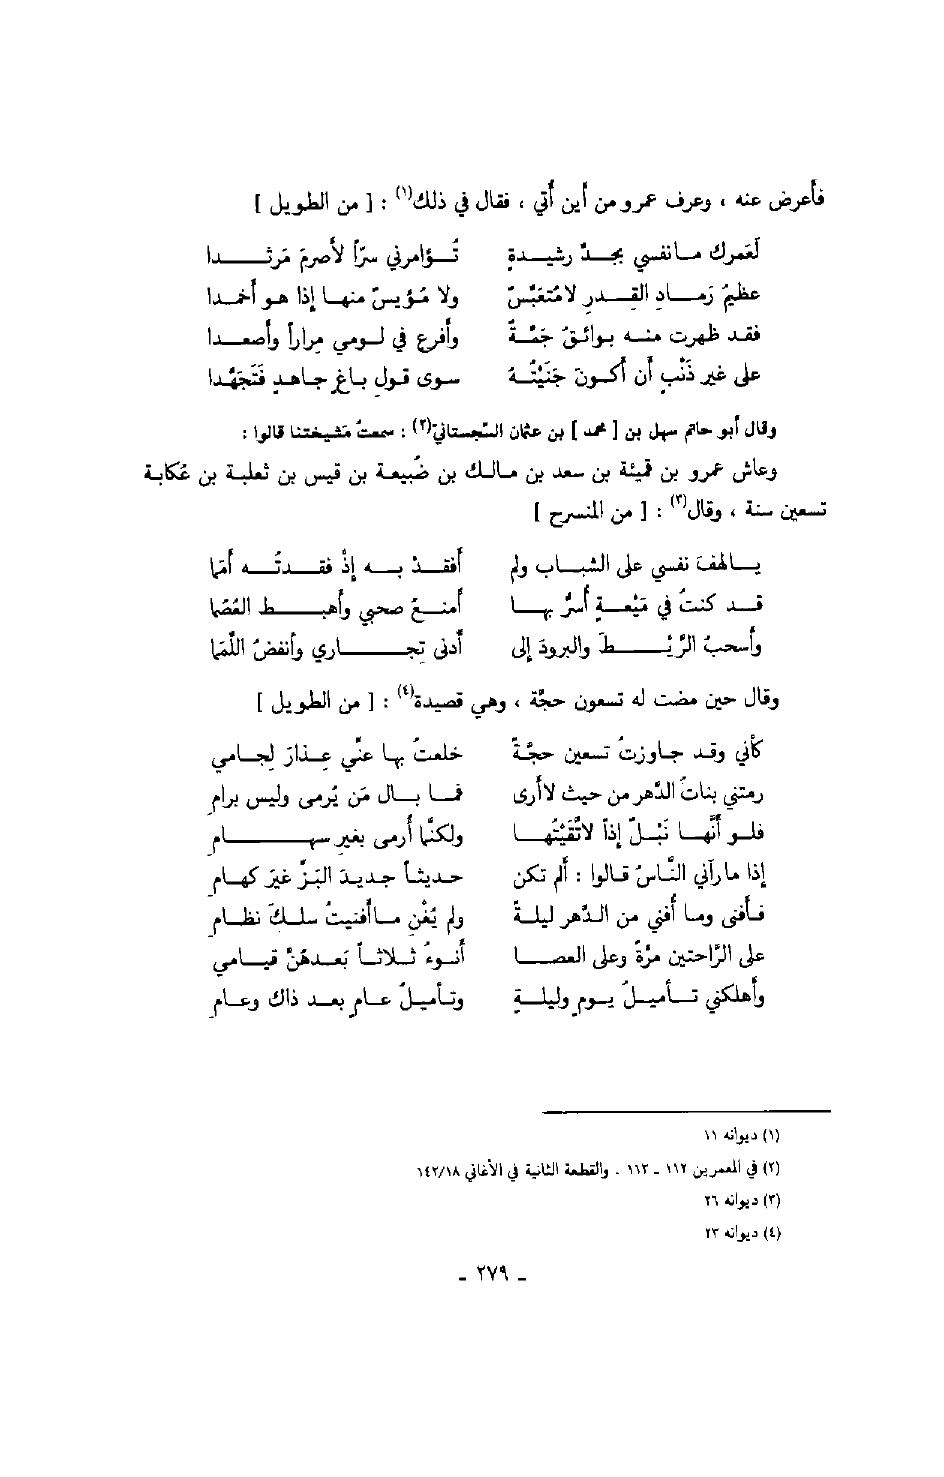 فأعرض عنه ، وعرف عمرو من أين أُتي ، فقال في ذلك(١) : [ من الطويل ]
لَعَمرك مـانفسي بجـدٍّ رشيـدةٍ تُـؤامرني سرّاً لأصرمَ مَرثـدا
عظيمُ رَمـادِ القِـدرِ لامُتعبِّسٌ ولا مُؤيسٌ منهـا إذا هو أخمدا
فقد ظهرت منـه بوائـقُ جَمَّـةٌ وأفرع في لـومي مِراراً وأصعـدا
على غير ذَنْبٍ أن أكـونَ جَنَيْتُـهُ سوى قـولِ بـاغٍ جـاهـدٍ فَتَجَهَّدا
وقال أبو حاتم سهل بن [ محمد ] بن عثمان السِّجستانيّ(٢) : سمعتُ مَشيختنا قالوا :
وعاش عمرو بن قميئة بن سعد بن مـالـك بن ضُبيعـة بن قيس بن ثعلبة بن عُكابـة
تسعين سنة ، وقال(٣) : [ من المنسرح ]
يـالهفَ نفسي على الشبـاب ولم أفقـدْ بـه إذْ فقـدتُـه أمَمَا
قـد كنتُ في مَيْعـةٍ أُسَرُّ بهـا أمنـعُ صحبي وأهبـط العُصُما
وأسحبُ الرَّيْـطَ والبرودَ إلى أدنى تِجـاري وأنفضُ اللِّمَما
وقال حين مضت له تسعون حجَّة ، وهي قصيدة(٤) : [ من الطويل ]
كأني وقد جـاوزتُ تسعين حجَّةً خلعتُ بهـا عنِّي عِـذارَ لِجـامي
رمتني بنـاتُ الدَّهرِ من حيث لاأرى فمـا بـالُ مَن يُرمى وليس برامِ
فلـو أنَّهـا نَبْـلٌ إذاً لاتَّقَيْتُهـا ولكنَّما أُرمى بغيرِ سهـامِ
إذا مارآني النَّاسُ قـالوا : ألم تكن حـديثـاً جديدَ البَزِّ غيرَ كهـامِ
فـأفنى ومـا أفني من الـدَّهر ليلةً ولم يُغْنِ مـاأفنيتُ سلـكَ نظـامِ
على الرَّاحتين مرَّةً وعلى العصـا أنـوءُ ثـلاثـاً بَعـدهُنَّ قيـامي
وأهلكني تـأميـلُ يـومٍ وليلـةٍ وتـأميـلُ عـامٍ بعـد ذاك وعـامِ
(١) ديوانه ١١
(٢) في المعمرين ١١٢ ـ ١١٣ . والقطعة الثانية في الأغاني ١٤٢/١٨
(٣) ديوانه ٢٦
(٤) ديوانه ٢٣
ـ ٢٧٩ ـ